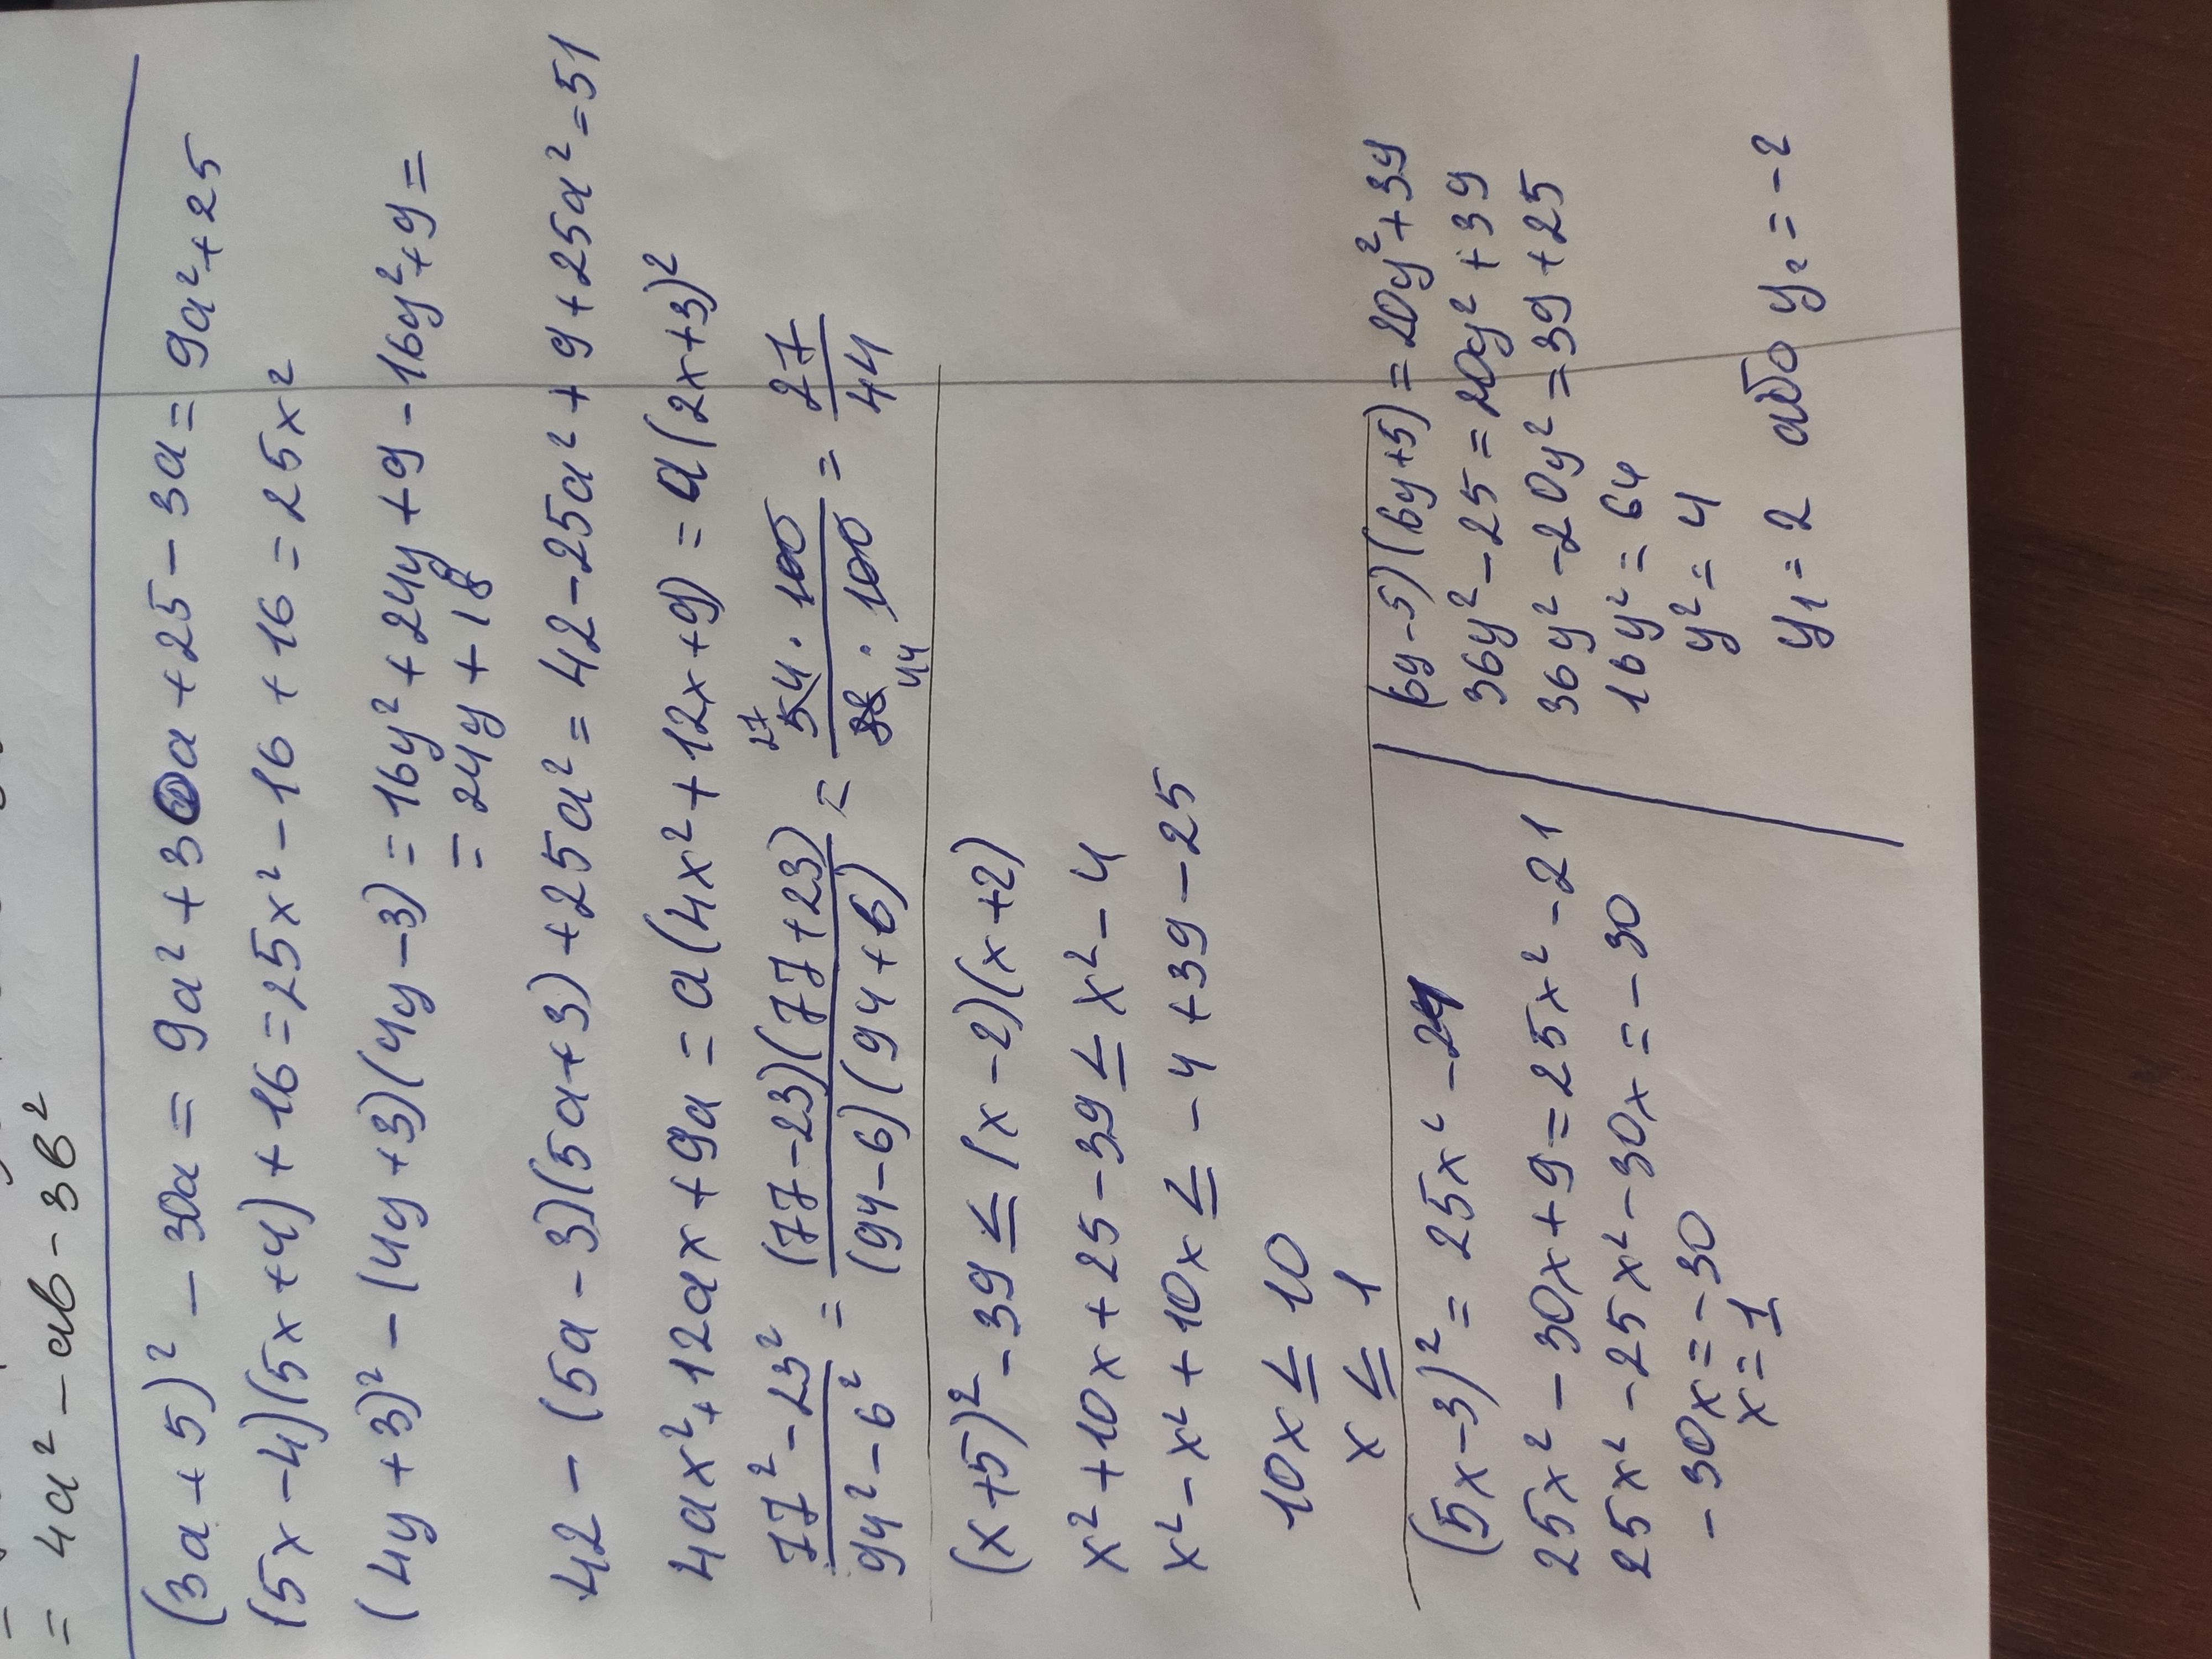 = 4a² - ab - 3b²
(3a+5)² - 30a = 9a² + 30a + 25 - 3a = 9a² + 25
(5x-4)(5x+4) + 16 = 25x² - 16 + 16 = 25x²
(4y+3)² - (4y+3)(4y-3) = 16y² + 24y + 9 - 16y² + 9 =
= 24y + 18
42 - (5a-3)(5a+3) + 25a² = 42 - 25a² + 9 + 25a² = 51
4ax² + 12ax + 9a = a(4x² + 12x + 9) = a(2x+3)²
77² - 23² / 94² - 6² = (77-23)(77+23) / (94-6)(94+6) = 27 54 · 100 / 88 · 100 44 = 27/44
(x+5)² - 39 ≤ (x-2)(x+2)
x² + 10x + 25 - 39 ≤ x² - 4
x² - x² + 10x ≤ -4 + 39 - 25
10x ≤ 10
x ≤ 1
(5x-3)² = 25x² - 21
25x² - 30x + 9 = 25x² - 21
25x² - 25x² - 30x = -30
-30x = -30
x = 1
(6y-5)(6y+5) = 20y² + 39
36y² - 25 = 20y² + 39
36y² - 20y² = 39 + 25
16y² = 64
y² = 4
y₁ = 2 або y₂ = -2